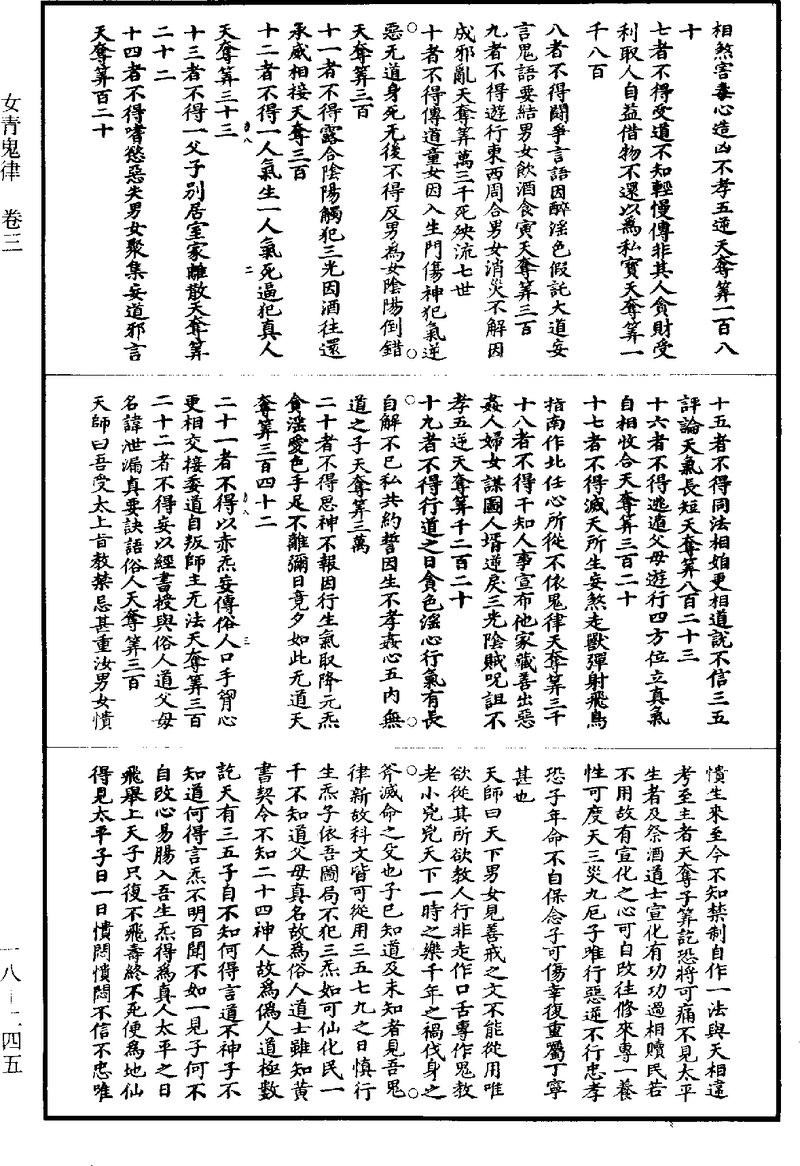 相煞害毒心造凶不孝五逆天奪筭一百八
十
七者不得受道不知輕慢傳非其人貪財受
利取人自益借物不還以爲私寳天奪筭一
千八百
八者不得鬭爭言語因醉淫色假託大道妄
言鬼語要結男女飲酒食寅天奪筭三百
九者不得遊行東西周合男女消災不解因
成邪亂天奪筭萬三千死殃流七世
十者不得傳道童女因入生門傷神犯氣逆
惡无道身死无後不得反男爲女陰陽倒錯
天奪筭三百
十一者不得露合陰陽觸犯三光因酒往還
承威相接天奪三百
十二者不得一人氣生一人氣死逼犯真人
天奪筭三十三
十三者不得一父子別居室家離散天奪筭
二十二
十四者不得嗜慾惡失男女聚集妄道邪言
天奪筭百二十
十五者不得同法相妬更相道説不信三五
評論天氣長短天奪筭八百二十三
十六者不得逃遁父母遊行四方位立真氣
自相收合天奪筭三百二十
十七者不得滅天所生妄煞走獸彈射飛鳥
指南作北任心所從不依鬼律天奪筭三千
十八者不得干知人事宣布他家藏善出惡
姦人婦女謀圖人壻逆戾三光陰賊呪詛不
孝五逆天奪筭千二百二十
十九者不得行道之日貪色淫心行氣有長
自解不已私共約誓因生不孝姦心五內無
道之子天奪筭三萬
二十者不得思神不報因行生氣取降元炁
貪淫愛色手足不離彌日竟夕如此无道天
奪筭三百四十二
二十一者不得以赤炁妄傳俗人口手胷心
更相交接委道自叛師主无法天奪筭三百
二十二者不得妄以經書授與俗人道父母
名諱泄漏真要訣語俗人天奪筭三百
天師曰吾受太上旨教禁忌甚重汝男女憒
憒生來至今不知禁制自作一法與天相違
考至主者天奪子筭訖恐將可痛不見太平
生者及祭酒道士宣化有功功過相贖民若
不用故有宣化之心可自改往修來專一養
性可度天三災九厄子唯行惡逆不行忠孝
恐子年命不自保念子可傷幸復重屬丁寧
甚也
天師曰天下男女見善戒之文不能從用唯
欲從其所欲教人行非走作口舌專作鬼教
老小兇兇天下一時之樂千年之禍伐身之
斧滅命之殳也子已知道及未知者見吾鬼
律新故科文皆可從用三五七九之日慎行
生炁子依吾圖局不犯三炁如可仙化民一
千不知道父母真名故爲俗人道士雖知黃
書契令不知二十四神人故爲僞人道極數
訖天有三五子自不知何得言道不神子不
知道何得言炁不明百聞不如一見子何不
自改心易腸入吾生炁得爲真人太平之日
飛舉上天子只復不飛壽終不死便爲地仙
得見太平子日一日憒悶憒悶不信不忠唯
女青鬼律　卷三
一八―二四五